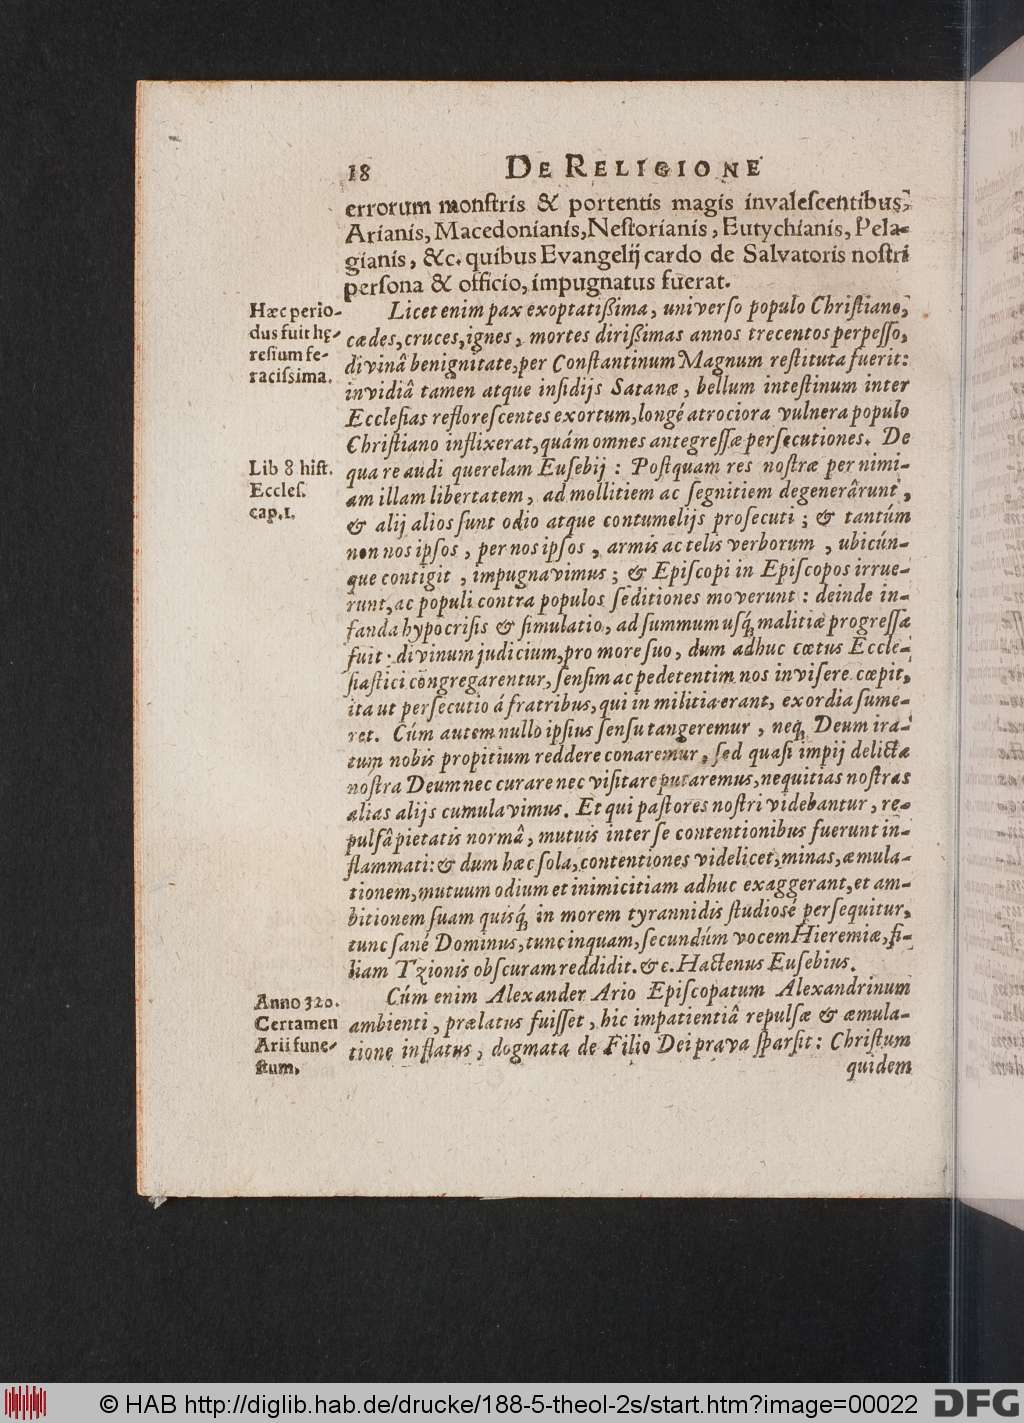 18 DE RELIGIONE
errorum monſtris & portentis magis invaleſcentibus,
Arianis, Macedonianis, Neſtorianis, Eutychianis, Pela-
gianis, &c. quibus Evangelij cardo de Salvatoris noſtri
perſona & officio, impugnatus fuerat.
Hæc perio-
dus fuit hę-
reſium fe-
raciſsima.
Licet enim pax exoptatißima, univerſo populo Chriſtiano,
cædes, cruces, ignes, mortes dirißimas annos trecentos perpeſſo,
divinâ benignitate, per Conſtantinum Magnum reſtituta fuerit:
invidiâ tamen atque inſidijs Satanæ, bellum inteſtinum inter
Eccleſias refloreſcentes exortum, longé atrociora vulnera populo
Chriſtiano inflixerat, quám omnes antegreſſæ perſecutiones. De
Lib 8 hiſt.
Eccleſ.
cap. 1.
qua re audi querelam Euſebij : Poſtquam res noſtræ per nimi-
am illam libertatem, ad mollitiem ac ſegnitiem degenerârunt,
& alij alios ſunt odio atque contumelijs proſecuti ; & tantúm
non nos ipſos, per nos ipſos, armis ac telis verborum, ubicún-
que contigit, impugnavimus ; & Epiſcopi in Epiſcopos irrue-
runt, ac populi contra populos ſeditiones moverunt : deinde in-
fanda hypocriſis & ſimulatio, ad ſummum uſq́, malitiæ progreſſa
fuit : divinum judicium, pro more ſuo, dum adhuc cœtus Eccle-
ſiaſtici congregarentur, ſenſim ac pedetentim nos inviſere cœpit,
ita ut perſecutio á fratribus, qui in militia erant, exordia ſume-
ret. Cúm autem nullo ipſius ſenſu tangeremur, neq́ Deum ira-
tum nobis propitium reddere conaremur, ſed quaſi impij delicta
noſtra Deum nec curare nec viſitare putaremus, nequitias noſtras
alias alijs cumulavimus. Et qui paſtores noſtri videbantur, re-
pulſâ pietatis normâ, mutuis inter ſe contentionibus fuerunt in-
flammati: & dum hæc ſola, contentiones videlicet, minas, æmula-
tionem, mutuum odium et inimicitiam adhuc exaggerant, et am-
bitionem ſuam quiſq́, in morem tyrannidis ſtudiosé perſequitur,
tunc ſané Dominus, tunc inquam, ſecundúm vocem Hieremiæ, fi-
liam Tzionis obſcuram reddidit. &c. Hactenus Euſebius.
Anno 320.
Certamen
Arii fune-
ſtum.
Cúm enim Alexander Ario Epiſcopatum Alexandrinum
ambienti, prælatus fuiſſet, hic impatientiâ repulſæ & æmula-
tione inflatus, dogmata de Filio Dei prava ſparſit : Chriſtum
quidem
© HAB http://diglib.hab.de/drucke/188-5-theol-2s/start.htm?image=00022
DFG